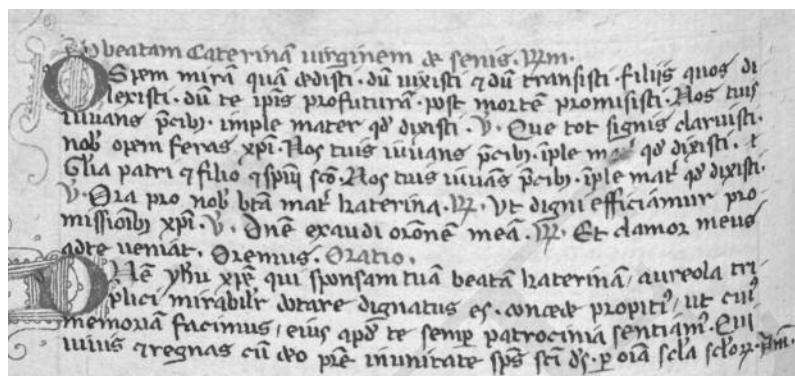 beatam Caterinā uirginem de senis. R̄m.
O Spem mirā quā dedisti. dū uixisti ⁊ dū transisti. filiis quos di
lexisti. dū te ip̄is profuturā. post mortē promisisti. Nos tuis
iuuans p̄cibꝫ. imple mater qd̓ dixisti. V̄. Que tot signis claruisti.
nob̓ opem feras xp̄i. Nos tuis iuuans p̄cibꝫ. īple qd̓ dixisti.
Gl̓ia patri ⁊ filio ⁊ spiritui scō. Nos tuis iuuās p̄cibꝫ. īple mat̓ qd̓ dixisti.
V̄. Ora pro nob̓ btā mat̓ katerina. R̄. Vt digni efficiamur pro
missionibꝫ xp̄i. V̄. Dn̄e exaudi orōnem meā. R̄. Et clamor meus
adte ueniat. Oremus. Oratio.
Dn̄e yh̄u xp̄e qui sponsam tuā beatam katerinā, aureola tri
plici mirabil̓r dotare dignatus es. concede propiti᾽, ut cui᾽
memoriā facimus, eius apd̓ te semꝑ patrocinia sentiam᾽. Qui
uiuis ⁊ regnas cū deo pr̄e inunitate sp̄s sc̄i d̓s. ꝑ oīa scl̓a scl̓oꝝ. Am̄.